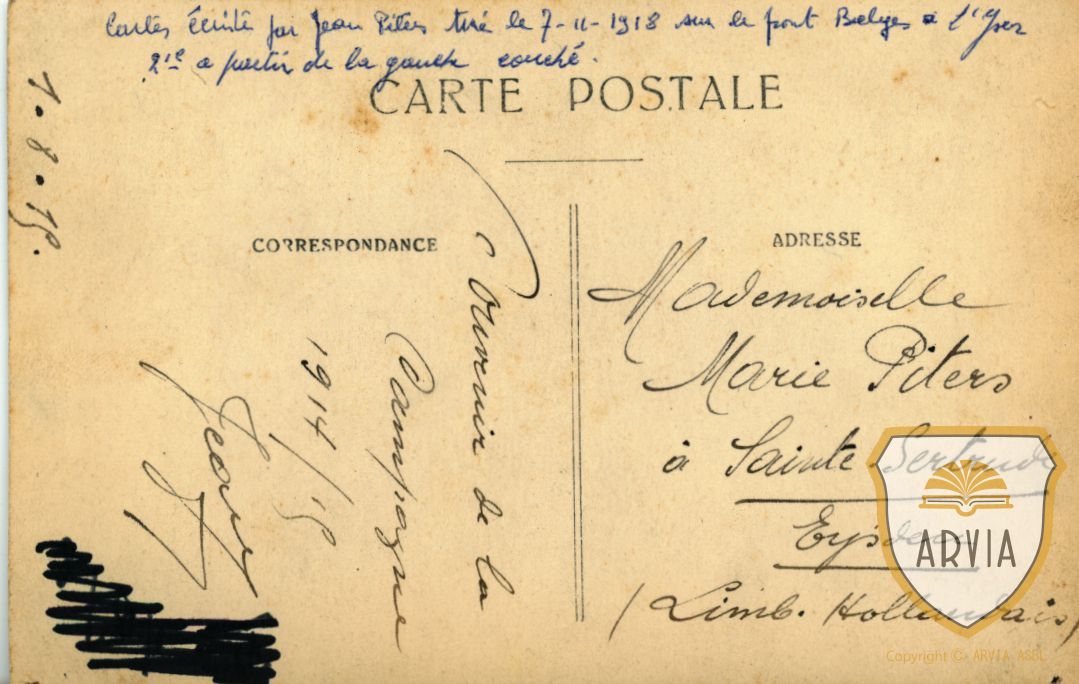 Cartes écrite par Jean Piters tiré le 7-11-1918 sur le front Belges à l'Yser
2ie a partir de la gauche couché.
CARTE POSTALE
7-8-15.
CORRESPONDANCE
Souvenir de la
Campagne
1914/15
Jean
ADRESSE
Mademoiselle
Marie Piters
à Sainte Gertrude
Eysden
(Limb. Hollandais)
ARVIA
Copyright © ARVIA ASBL